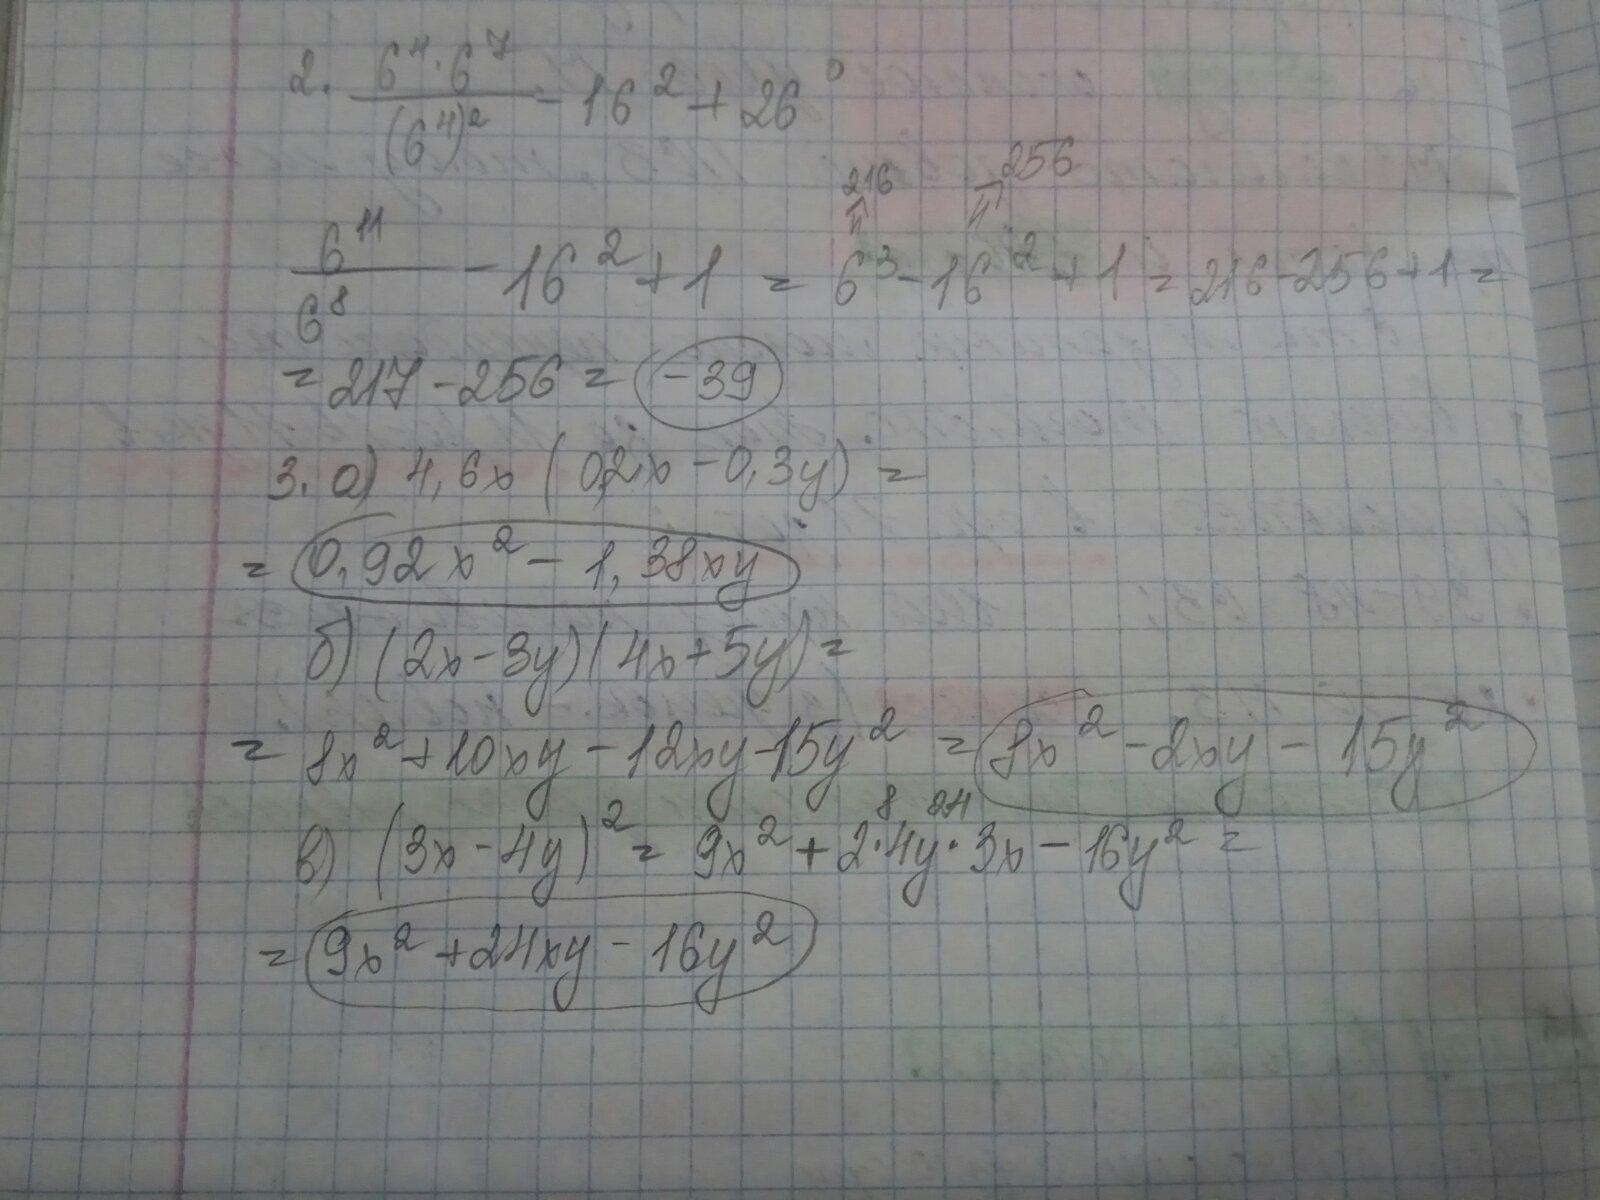 2. 6⁴·6⁷/(6⁴)² - 16² + 26⁰
216 256
6¹¹/6⁸ - 16² + 1 = 6³ - 16² + 1 = 216 - 256 + 1 =
= 217 - 256 = -39
3. а) 4,6x (0,2x - 0,3y) =
= 0,92x² - 1,38xy
б) (2x - 3y)(4x + 5y) =
= 8x² + 10xy - 12xy - 15y² = 8x² - 2xy - 15y²
8 24
в) (3x - 4y)² = 9x² + 2·4y·3x - 16y² =
= 9x² + 24xy - 16y²